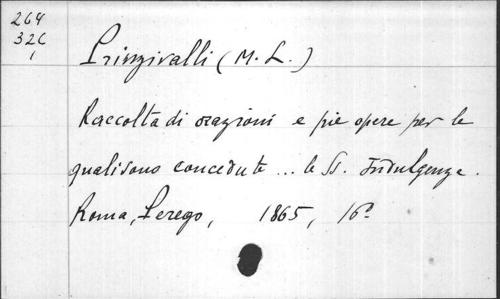 264
32C
1
Prinzivalli (M. L.)
Raccolta di orazioni e pie opere per le
quali sono concedute ... le SS. Indulgenze.
Roma, Perego, 1865, 16º